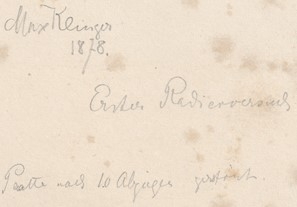 Max Klinger
1878.
Erster Radierversuch
Platte nach 10 Abzügen zerstört.